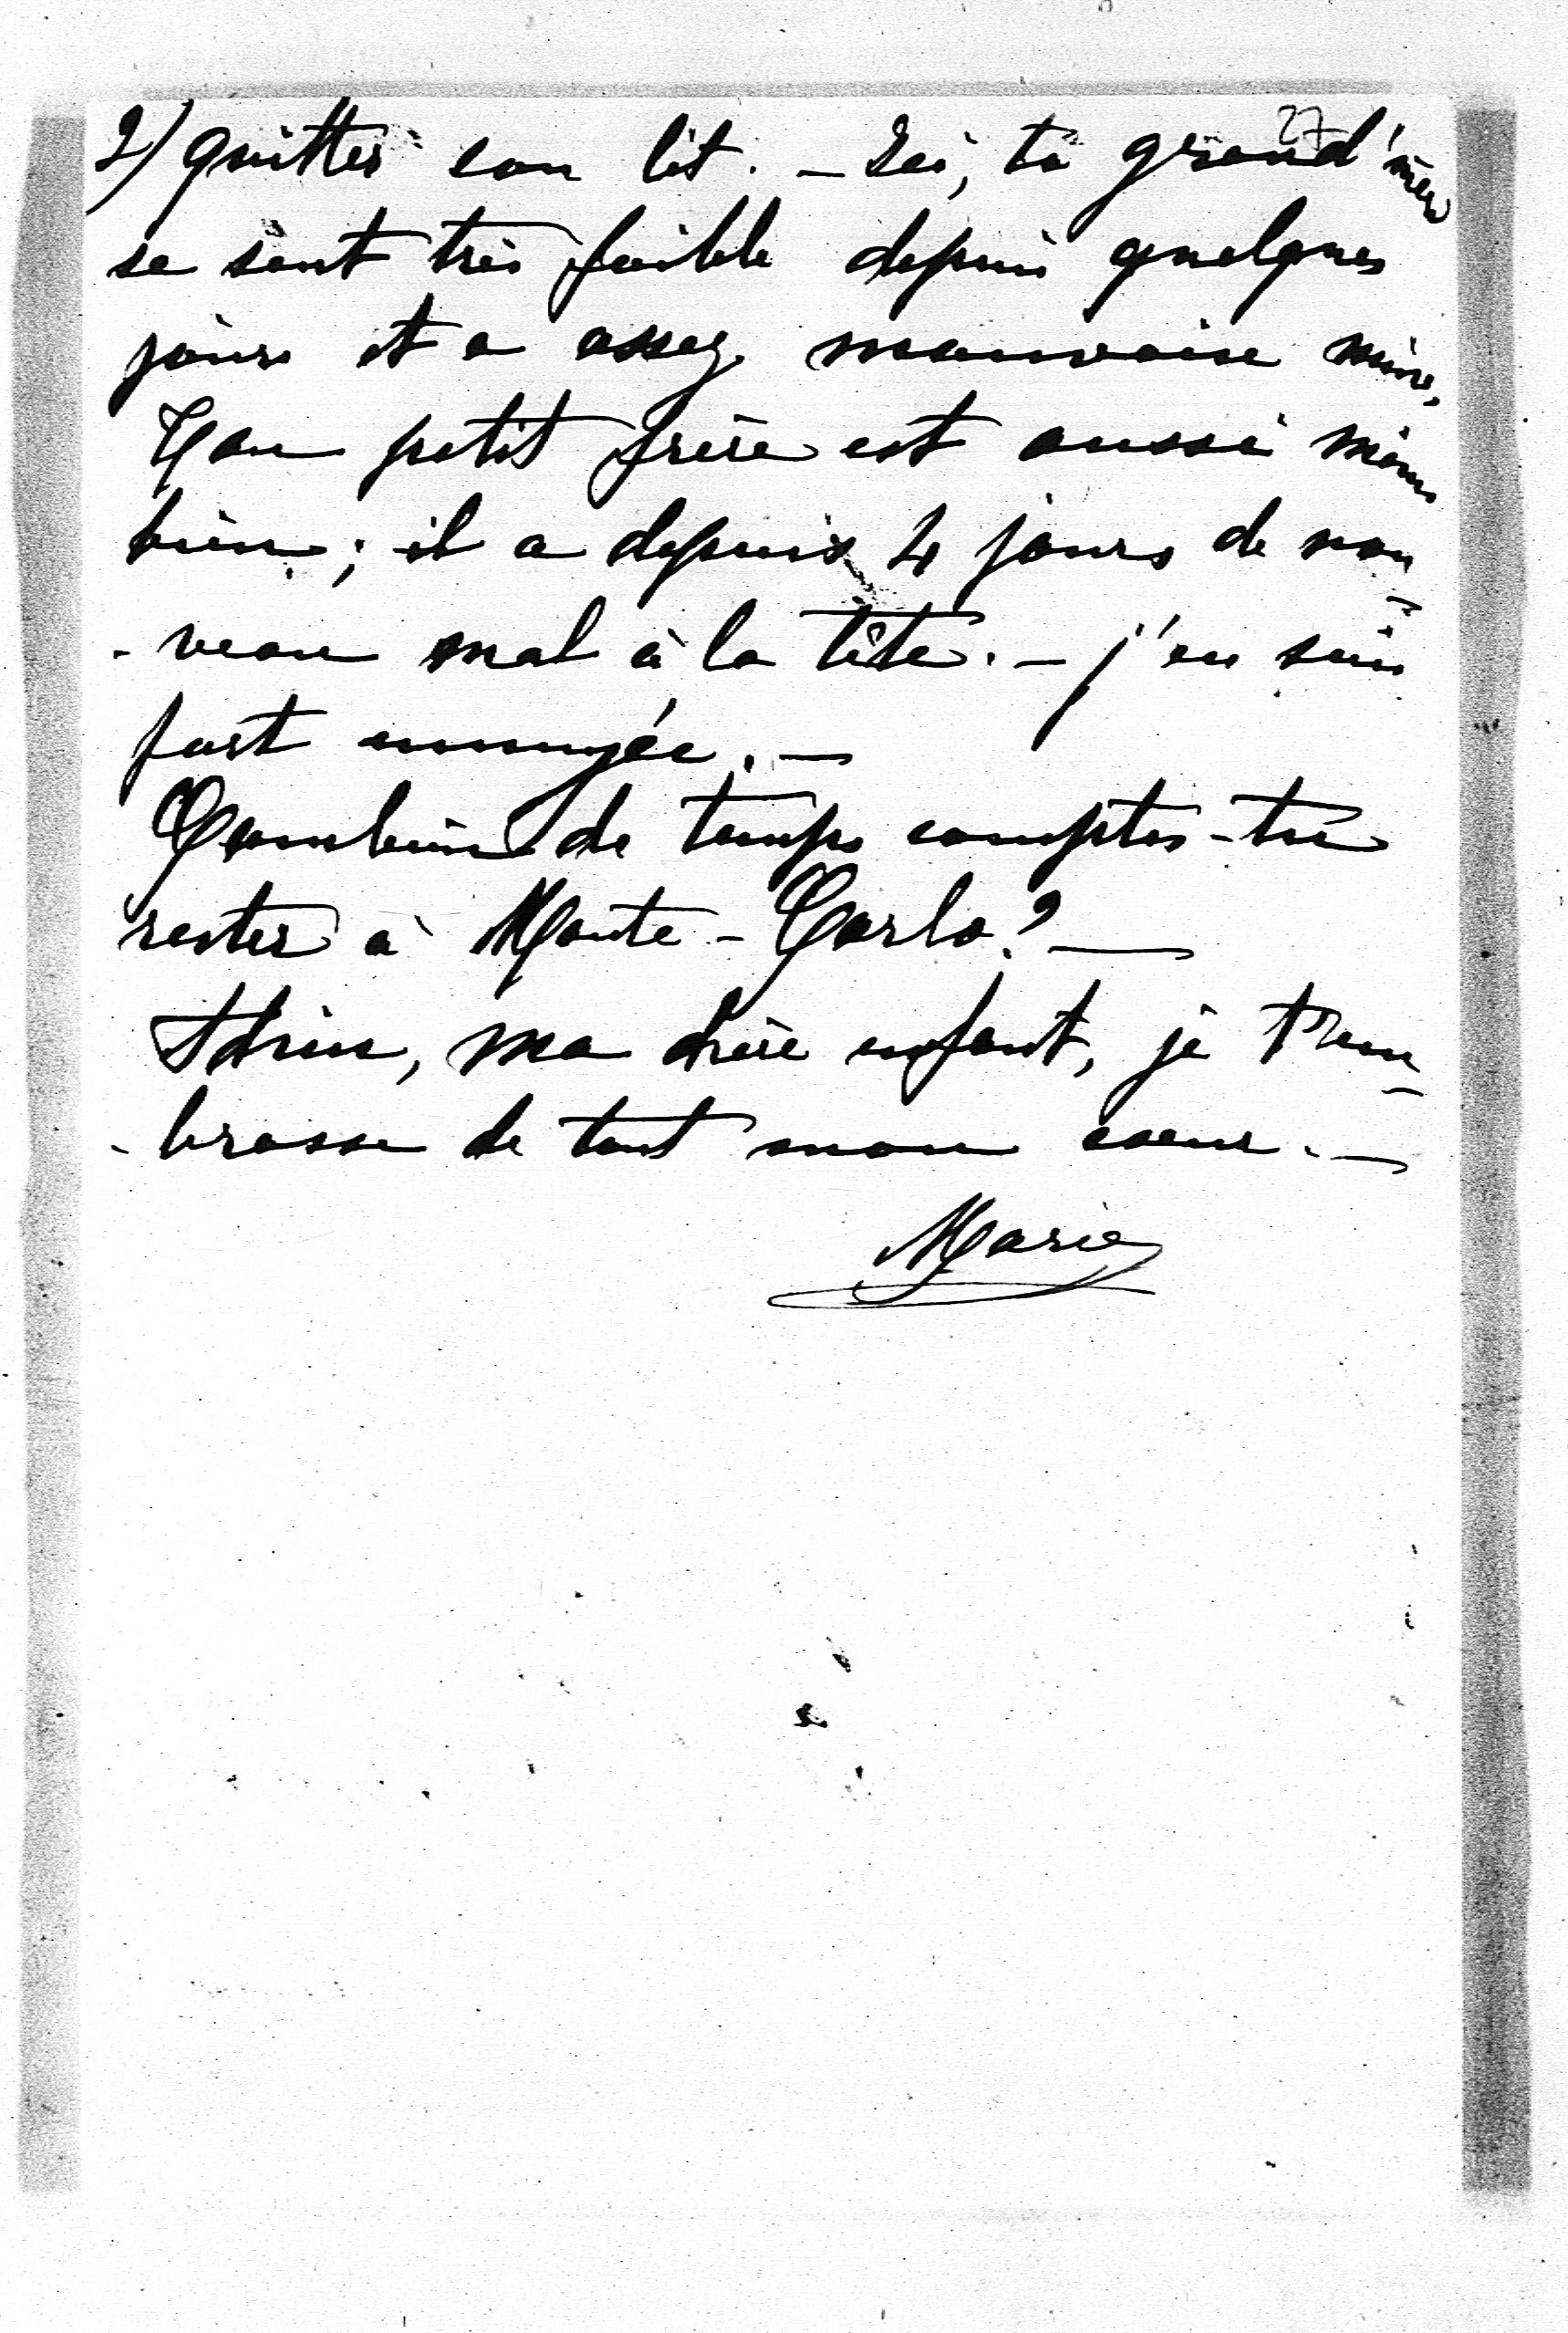 27
2) quitter son lit. — Ici, ta grand'mère
se sent très faible depuis quelques
jours et a assez mauvaise mine.
Ton petit frère est aussi moins
bien ; il a depuis 4 jours de nou-
-veau mal à la tête. — j'en suis
fort ennuyée. —
Combien de temps comptes-tu
rester à Monte-Carlo? —
Adieu, ma chère enfant, je t'em-
-brasse de tout mon coeur. —
Marie